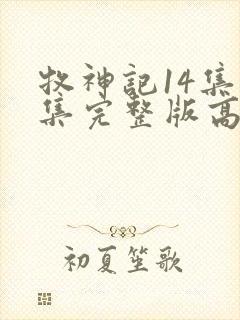 牧神記14集
集完整版高
初夏笙歌